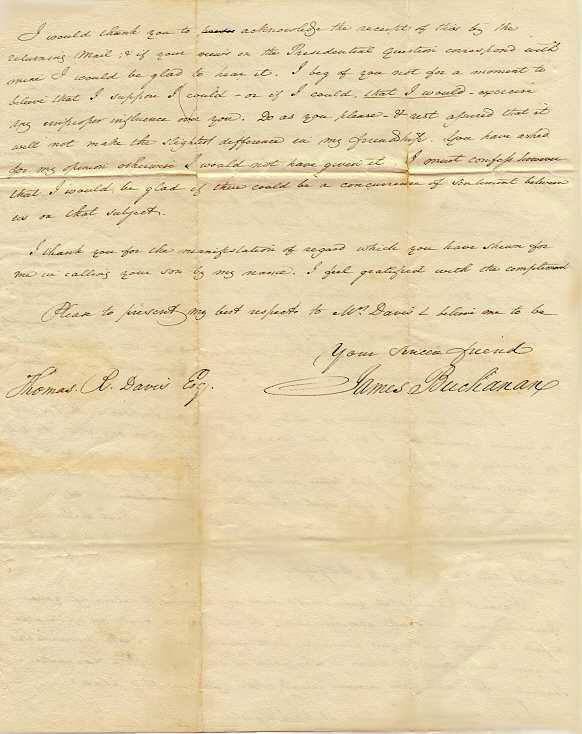 I would thank you to acknowledge the receipt of this by the
returning Mail & if your views on the Presidential Question correspond with
mine I would be glad to hear it. I beg of you not for a moment to
believe that I suppose I could - or if I could, that I would - exercise
any improper influence over you. Do as you please - & rest assured that it
will not make the slightest difference in my friendship. You have asked
for my opinion otherwise I would not have given it. I must confess however
that I would be glad if there could be a concurrence of sentiment between
us on that subject.
I thank you for the manifestation of regard which you have shewn for
me in calling your son by my name. I feel gratified with the compliment
Please to present my best respects to Mrs Davis & believe me to be
Your sincere friend
James Buchanan
Thomas. R. Davis Esq.